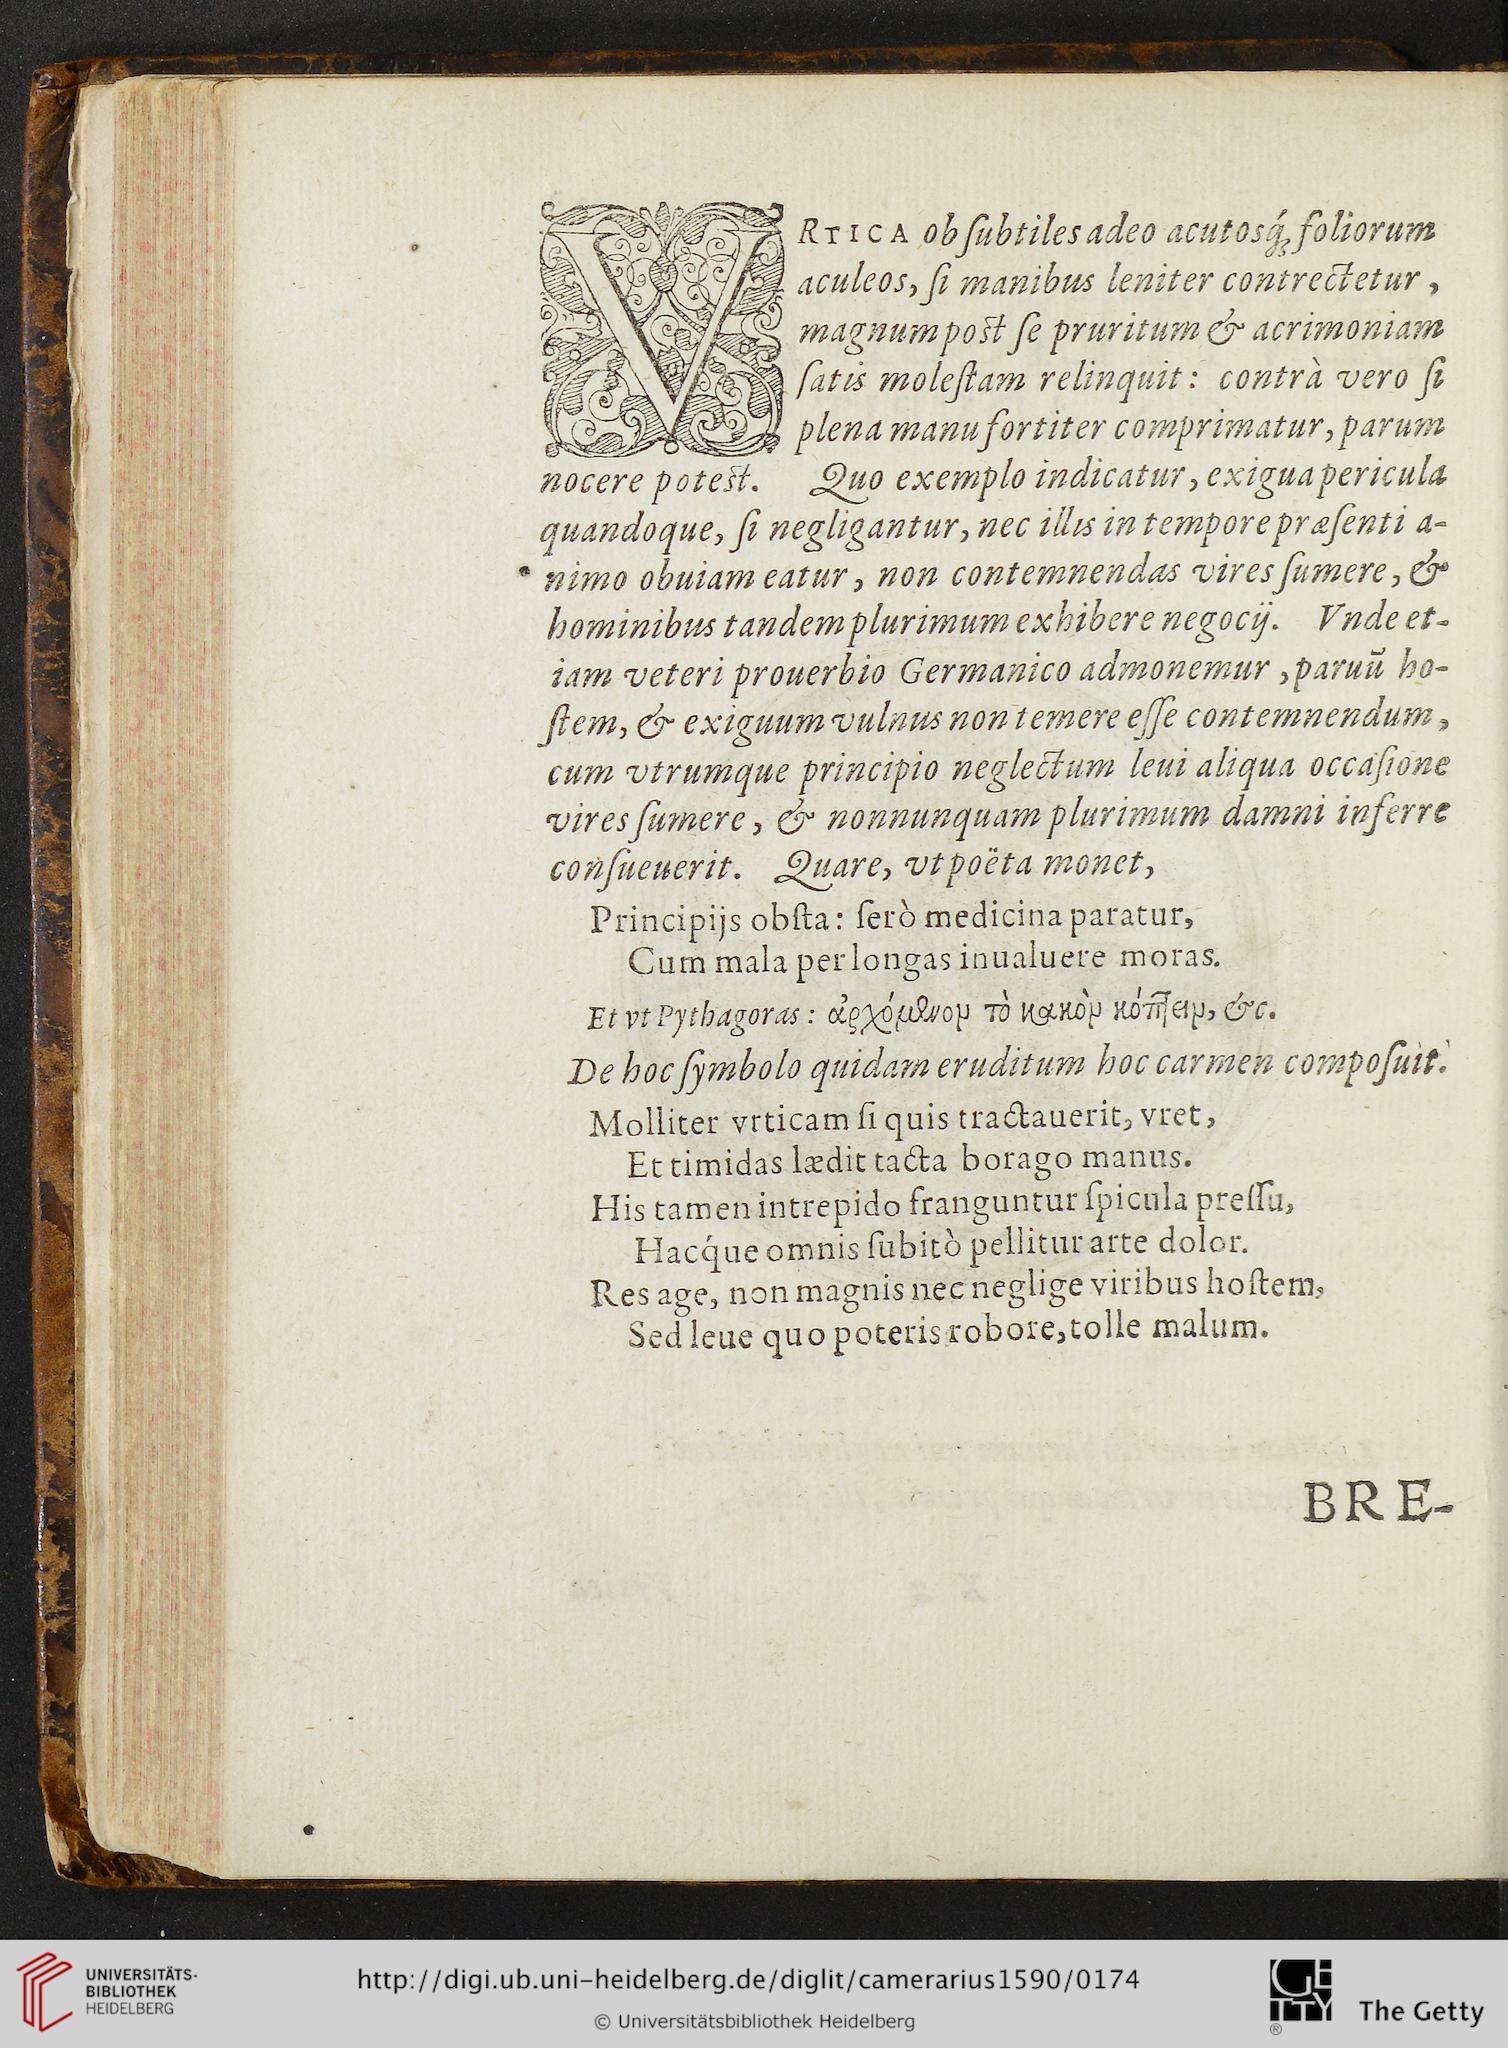 VRTICA ob ſubtiles adeo acutosq́; foliorum
aculeos, ſi manibus leniter contrectetur,
magnum post ſe pruritum & acrimoniam
ſatis moleſtam relinquit: contrà vero ſi
plena manu fortiter comprimatur, parum
nocere potest. Quo exemplo indicatur, exigua pericula
quandoque, ſi negligantur, nec illis in tempore præſenti a-
nimo obuiam eatur, non contemnendas vires ſumere, &
hominibus tandem plurimum exhibere negocij. Vnde et-
iam veteri prouerbio Germanico admonemur, paruū ho-
ſtem, & exiguum vulnus non temere eſſe contemnendum,
cum vtrumque principio neglectum leui aliqua occaſione
vires ſumere, & nonnunquam plurimum damni inferre
conſueuerit. Quare, vt poëta monet,
Principijs obſta: ſerò medicina paratur,
Cum mala per longas inualuere moras.
Et vt Pythagoras: ἀρχόμενον τὸ κακὸν κόπτειν, &c.
De hoc ſymbolo quidam eruditum hoc carmen compoſuit.
Molliter vrticam ſi quis tractauerit, vret,
Et timidas lædit tacta borago manus.
His tamen intrepido franguntur ſpicula preſſu,
Hacq́ue omnis ſubitò pellitur arte dolor.
Res age, non magnis nec neglige viribus hoſtem,
Sed leue quo poteris robore, tolle malum.
BRE-
UNIVERSITÄTS-
BIBLIOTHEK
HEIDELBERG
http://digi.ub.uni-heidelberg.de/diglit/camerarius1590/0174
© Universitätsbibliothek Heidelberg
GETTY
®
The Getty